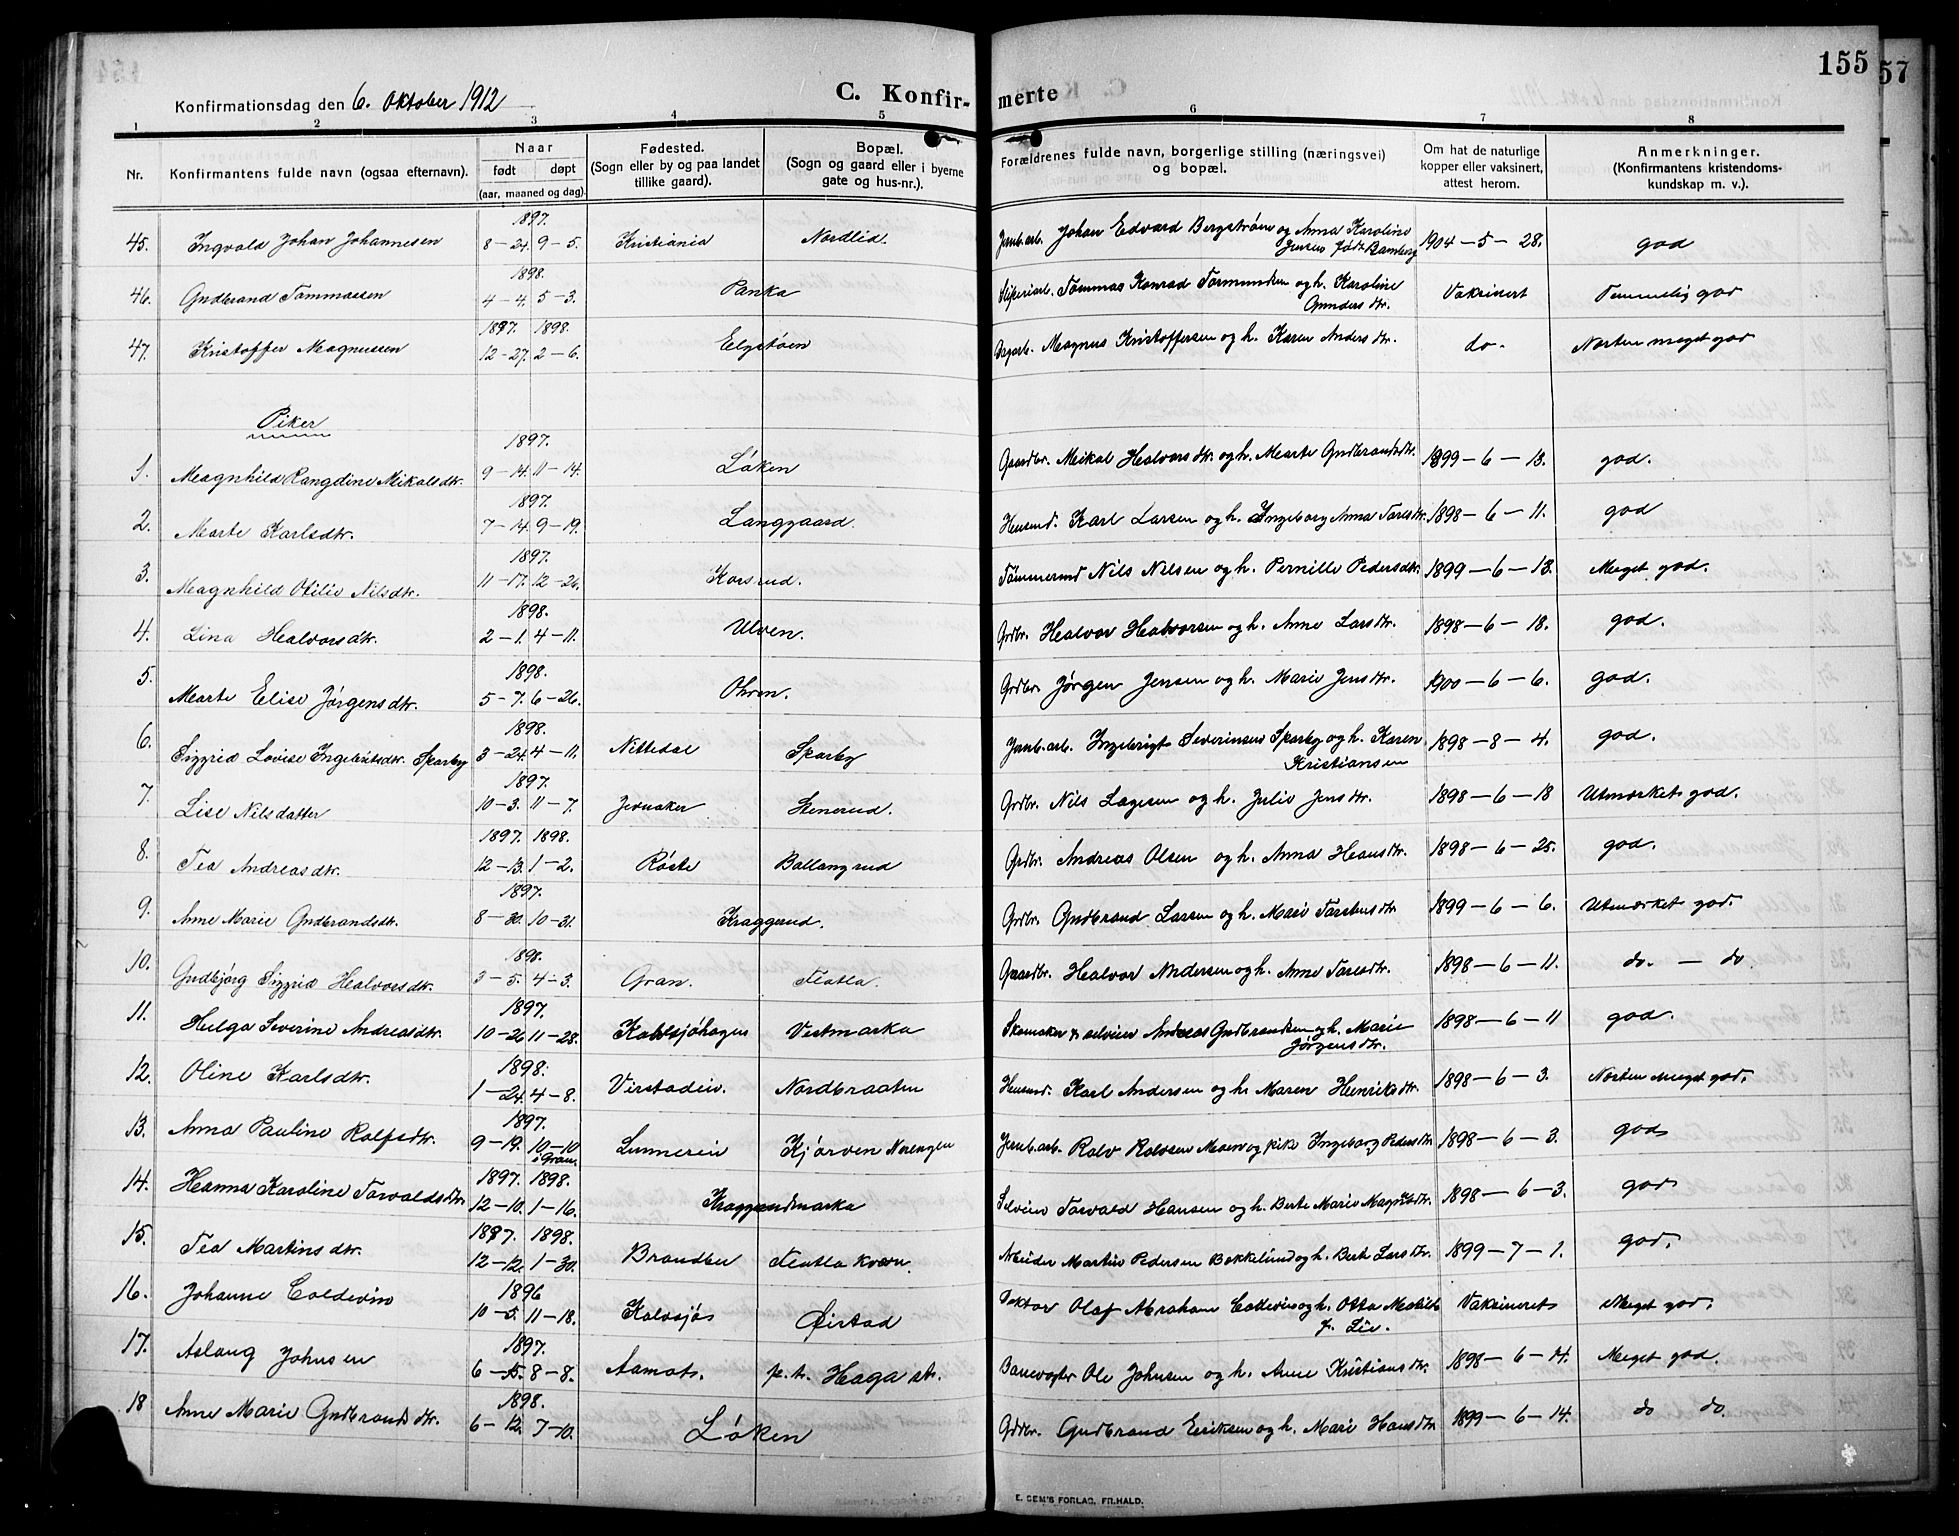 155
57
Konfirmationsdag den 6. Oktober 1912
C. Konfir- merte
1 2 3 4 5 6 7 8
Nr.
Konfirmantens fulde navn (ogsaa efternavn).
Naar
født døpt
(aar, maaned og dag).
Fødested.
(Sogn eller by og paa landet
tillike gaard).
Bopæl.
(Sogn og gaard eller i byerne
gate og hus-nr.).
Forældrenes fulde navn, borgerlige stilling (næringsvei)
og bopæl.
Om hat de naturlige
kopper eller vaksinert,
attest herom.
Anmerkninger.
(Konfirmantens kristendoms-
kundskap m. v.).
1897.
45. Ingvald Johan Johannesen 8-24. 9-5. Kristiania Nordlid. Jernb.arb. Johan Edvard Bergstrøm og Anna Karoline 1904-5-28. god
Jensen født Bamberg
1898.
46. Gudbrand Tommassen 4-4. 5-3. Panka Tommas Konrad Tormundsen og h. Karoline Vaksinert Temmelig god
Gunders dtr.
1897. 1898.
47. Kristoffer Magnussen 12-27. 2-6. Elgstøen Magnus Kristoffersen og h. Karen Anders dtr. do. Næsten meget god
Piker
1897.
1. Magnhild Rangdine Mikalsdtr. 9-14. 11-14. Løken Gaardbr. Mikal Halvors dtr. og h. Marte Gudbrandsdtr. 1899-6-18. god.
1897.
2. Marte Karlsdtr. 7-14. 9-19. Langgaard. Husmd. Karl Larsen og h. Ingeborg Anna Torlsdtr. 1898-6-11. god
1897.
3. Magnhild Otilie Nilsdtr. 11-17. 12-26. Korsrud. Tømmermd Nils Nilsen og h. Pernille Pedersdtr. 1899-6-18. Meget god.
1898.
4. Lina Halvorsdtr. 2-1. 4-11. Ulven. Grdbr. Halvor Halvorsen og h. Anne Larsdtr. 1898-6-18. god.
1898.
5. Marte Elise Jørgensdtr. 5-7. 6-26. Ohren. Grdbr. Jørgen Jensen og h. Marie Jensdtr. 1900-6-6. god.
1898.
6. Sigrid Lovise Ingebritsdtr. Sparby 3-24. 4-11. Nittedal Sparby Jernb.arb. Ingebrigt Severinsen Sparby og h. Karen 1898-8-4. god.
Kristiansen
1897.
7. Lise Nilsdatter 10-3. 11-7. Jevnaker Stenerud. Grdbr. Nils Lagesen og h. Julie Jensdtr. 1898-6-18 Utmerket god.
1897. 1898.
8. Tea Andreasdtr. 12-13. 1-2. Røste Ballangrud Grdbr. Andreas Olsen og h. Anna Hansdtr. 1898-6-25. god.
1897.
9. Anne Marie Gudbrandsdtr. 8-30. 10-31. Kraggerud. Grdbr. Gudbrand Larsen og h. Mari Torstensdtr. 1899-6-6. Utmerket god.
1898.
10. Gudbjørg Sigrid Halvorsdtr. 3-5. 4-3. Gran. Flatla. Gaardbr. Halvor Andersen og h. Anne Toresdtr. 1898-6-11. do. - do.
1897.
11. Helga Severine Andreasdtr. 10-26 11-28. Kalvsjøhagen Vestmarka Skomaker & selveier Andreas Gudbrandsen og h. Marie 1898-6-11 god.
Jørgensdtr.
1898.
12. Oline Karlsdtr. 1-24. 4-8. Virstadeie. Nordbraaten Husmd. Karl Andersen og h. Maren Henriksdtr. 1898-6-3. Næsten meget god.
1897.
13. Anna Pauline Rolfsdtr. 9-19. 10-10 Lunnereie Kjørven Norengen Jernb.arb. Rolv Rolvsen Moen og pike Ingeborg Pedersdtr. 1898-6-3. god
i Gran
1897. 1898.
14. Hanna Karoline Torvaldsdtr. 12-10. 1-16. Kraggerudmarka Selveier Torvald Hansen og h. Berte Marie Magnusdtr. 1898-6-3. god
1897. 1898.
15. Tea Martinsdtr. 12-12. 1-30. Brandbu Flatla kværn. Arbeider Martin Pedersen Bekkelund og h. Berte Larsdtr. 1899-7-1. god.
1896
16. Johanne Coldevin 10-5. 11-18. Kalvsjø Øistad Doktor Olaf Abraham Coldevin og h. Otta Matilde Vaksineret Meget god.
f. Lie.
1897.
17. Aslaug Johnsen 6-15. 8-8. Aamot. p.t. Haga st. Banevogter Ole Johnsen og h. Anne Kristiansdtr. 1898-6-14. Meget god.
1898.
18 Anne Marie Gudbrandsdtr. 6-12. 7-10. Løken Grdbr. Gudbrand Eriksen og h. Mari Hansdtr. 1899-6-14. do do.
E. SEM'S FORLAG, FR.HALD.